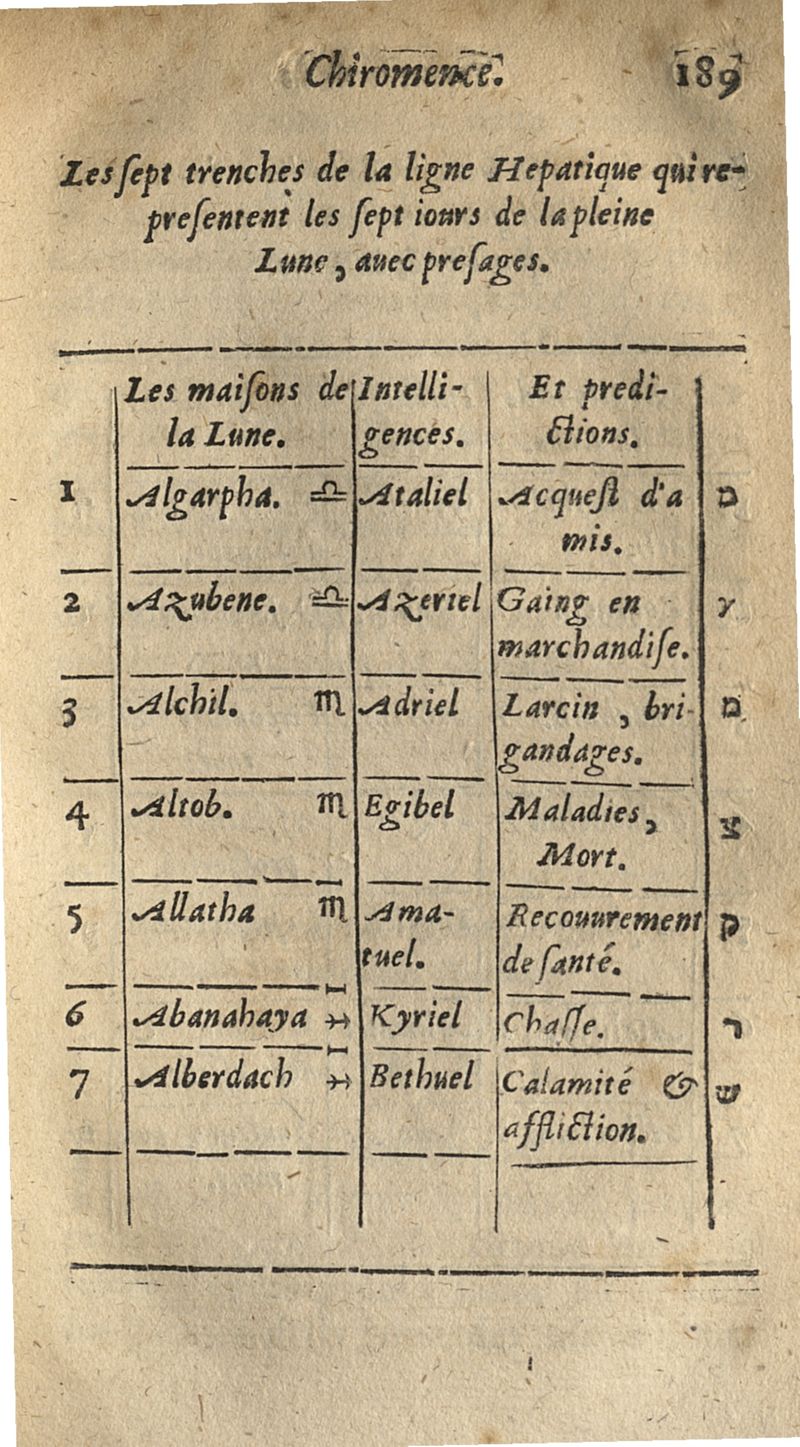 Chiromence. 189
Les ſept trenches de la ligne Hepatique qui re-
preſentent les ſept iours de la pleine
Lune, auec preſages.
Les maiſons de Intelli- Et predi-
la Lune. gences. ctions.
1 Algarpha. ♎ Ataliel Acqueſt d'a מ
mis.
2 Azubene. ♎ Azeriel Gaing en ץ
marchandiſe.
3 Alchil. ♏ Adriel Larcin, bri- מ
gandages.
4 Altob. ♏ Egibel Maladies, צ
Mort.
5 Allatha ♏ Ama- Recouurement ק
tuel. de ſanté.
6 Abanahaya ♐ Kyriel Chaſſe. ר
7 Alberdach ♐ Bethuel Calamité & ש
affliction.